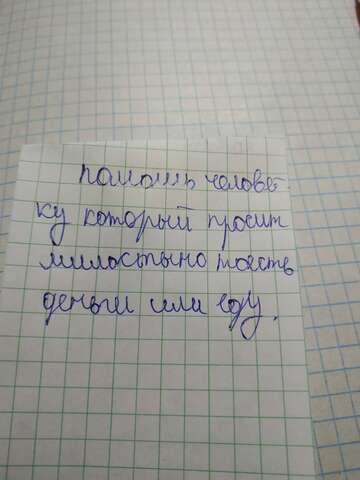 помошь человет
ку который просит
милостыно тоесть
деньги или еду.